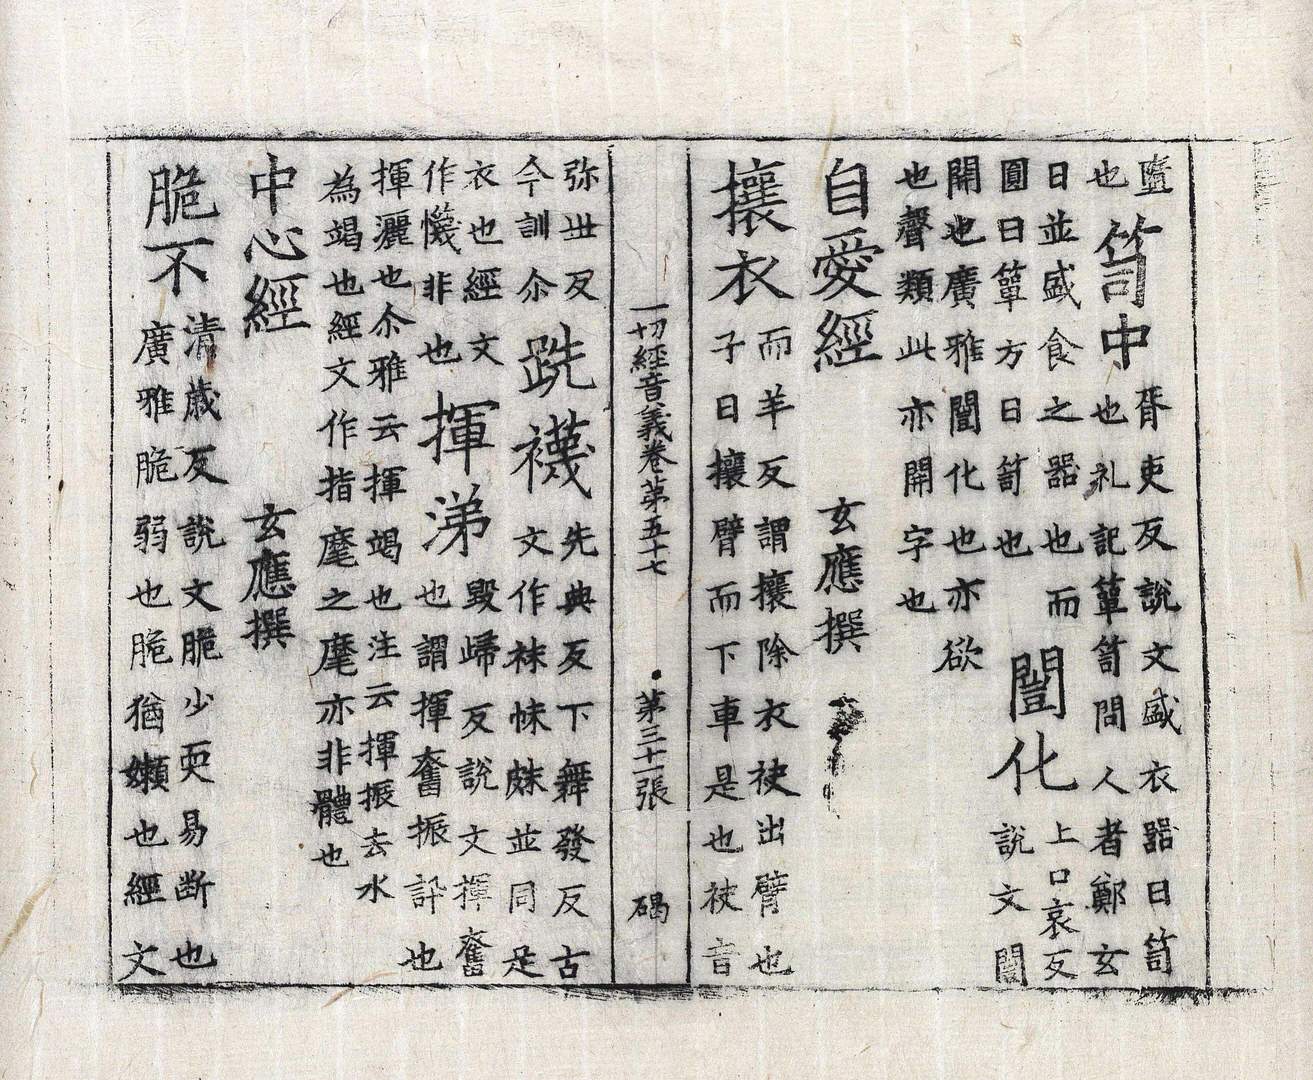 鹽
也
笥中
胥吏反說文盛衣器曰笥
也礼記簞笥問人者鄭玄
曰並盛食之器也而
圓曰簞方曰笥也
闓化
上口哀反
說文闓
開也廣雅闓化也亦欲
也聲類此亦開字也
自愛經 玄應撰
攘衣
而羊反謂攘除衣袂出臂也
子曰攘臂而下車是也袂音
一切經音義卷第五十七 第三十一張 碣
弥丗反
今訓尒
跣襪
先典反下舞發反古
文作袜帓並同足
衣也經文
作非也
揮涕
毀歸反說文揮奮
也謂揮奮振訝也
揮灑也尒雅云揮竭也注云揮振去水
為竭也經文作指麾之麾亦非體也
中心經 玄應撰
脆不
清歲反說文脆少耎易断也
廣雅脆弱也脆猶嬾也經文